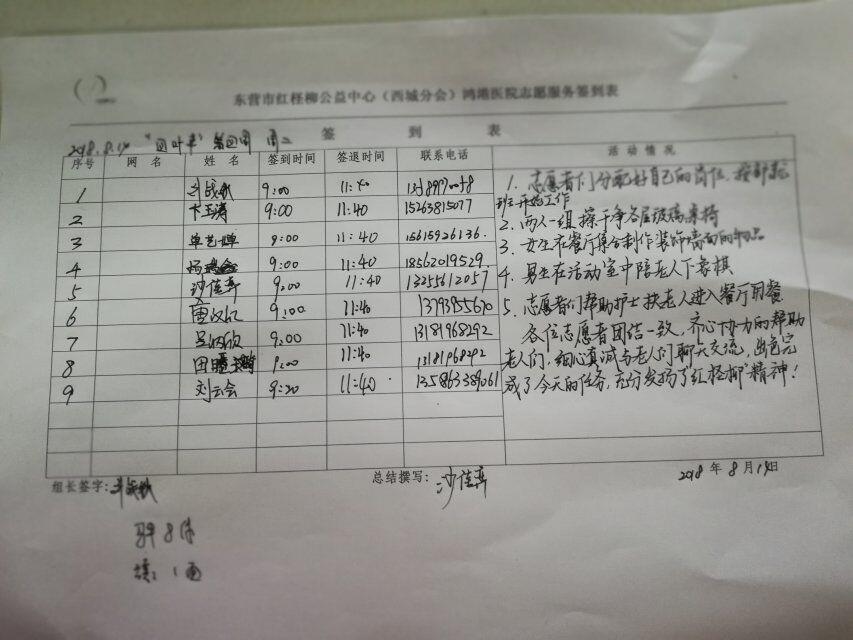 东营市红柽柳公益中心（西城分会）鸿港医院志愿服务签到表
签 到 表
2018.8.14 周二
序号 网 名 姓 名 签到时间 签退时间 联系电话 活 动 情 况
1 9:00 11:40
2 卞玉涛 9:00 11:40 15263815077
3 单艺婵 9:00 11:40 15615926136
4 9:00 11:40 18562019529
5 沙佳奔 9:00 11:40 13255612057
6 9:00 11:40 13793955670
7 9:00 11:40 13181968292
8 田 9:00 11:40 13181968292
9 刘云会 9:20 11:40 135863389061
1. 志愿者们分配好自己的岗位，按部就
班开始工作
2. 两人一组擦干净各层玻璃桌椅
3. 女生在餐厅集合制作装饰墙面的物品
4. 男生在活动室中陪老人下象棋
5. 志愿者们帮助护士扶老人进入餐厅用餐
各位志愿者团结一致，齐心协力的帮助
老人们，细心真诚与老人们聊天交流，出色完
成了今天的任务，充分发扬了“红柽柳”精神！
组长签字： 总结撰写：沙佳奔 2018 年 8 月 14日